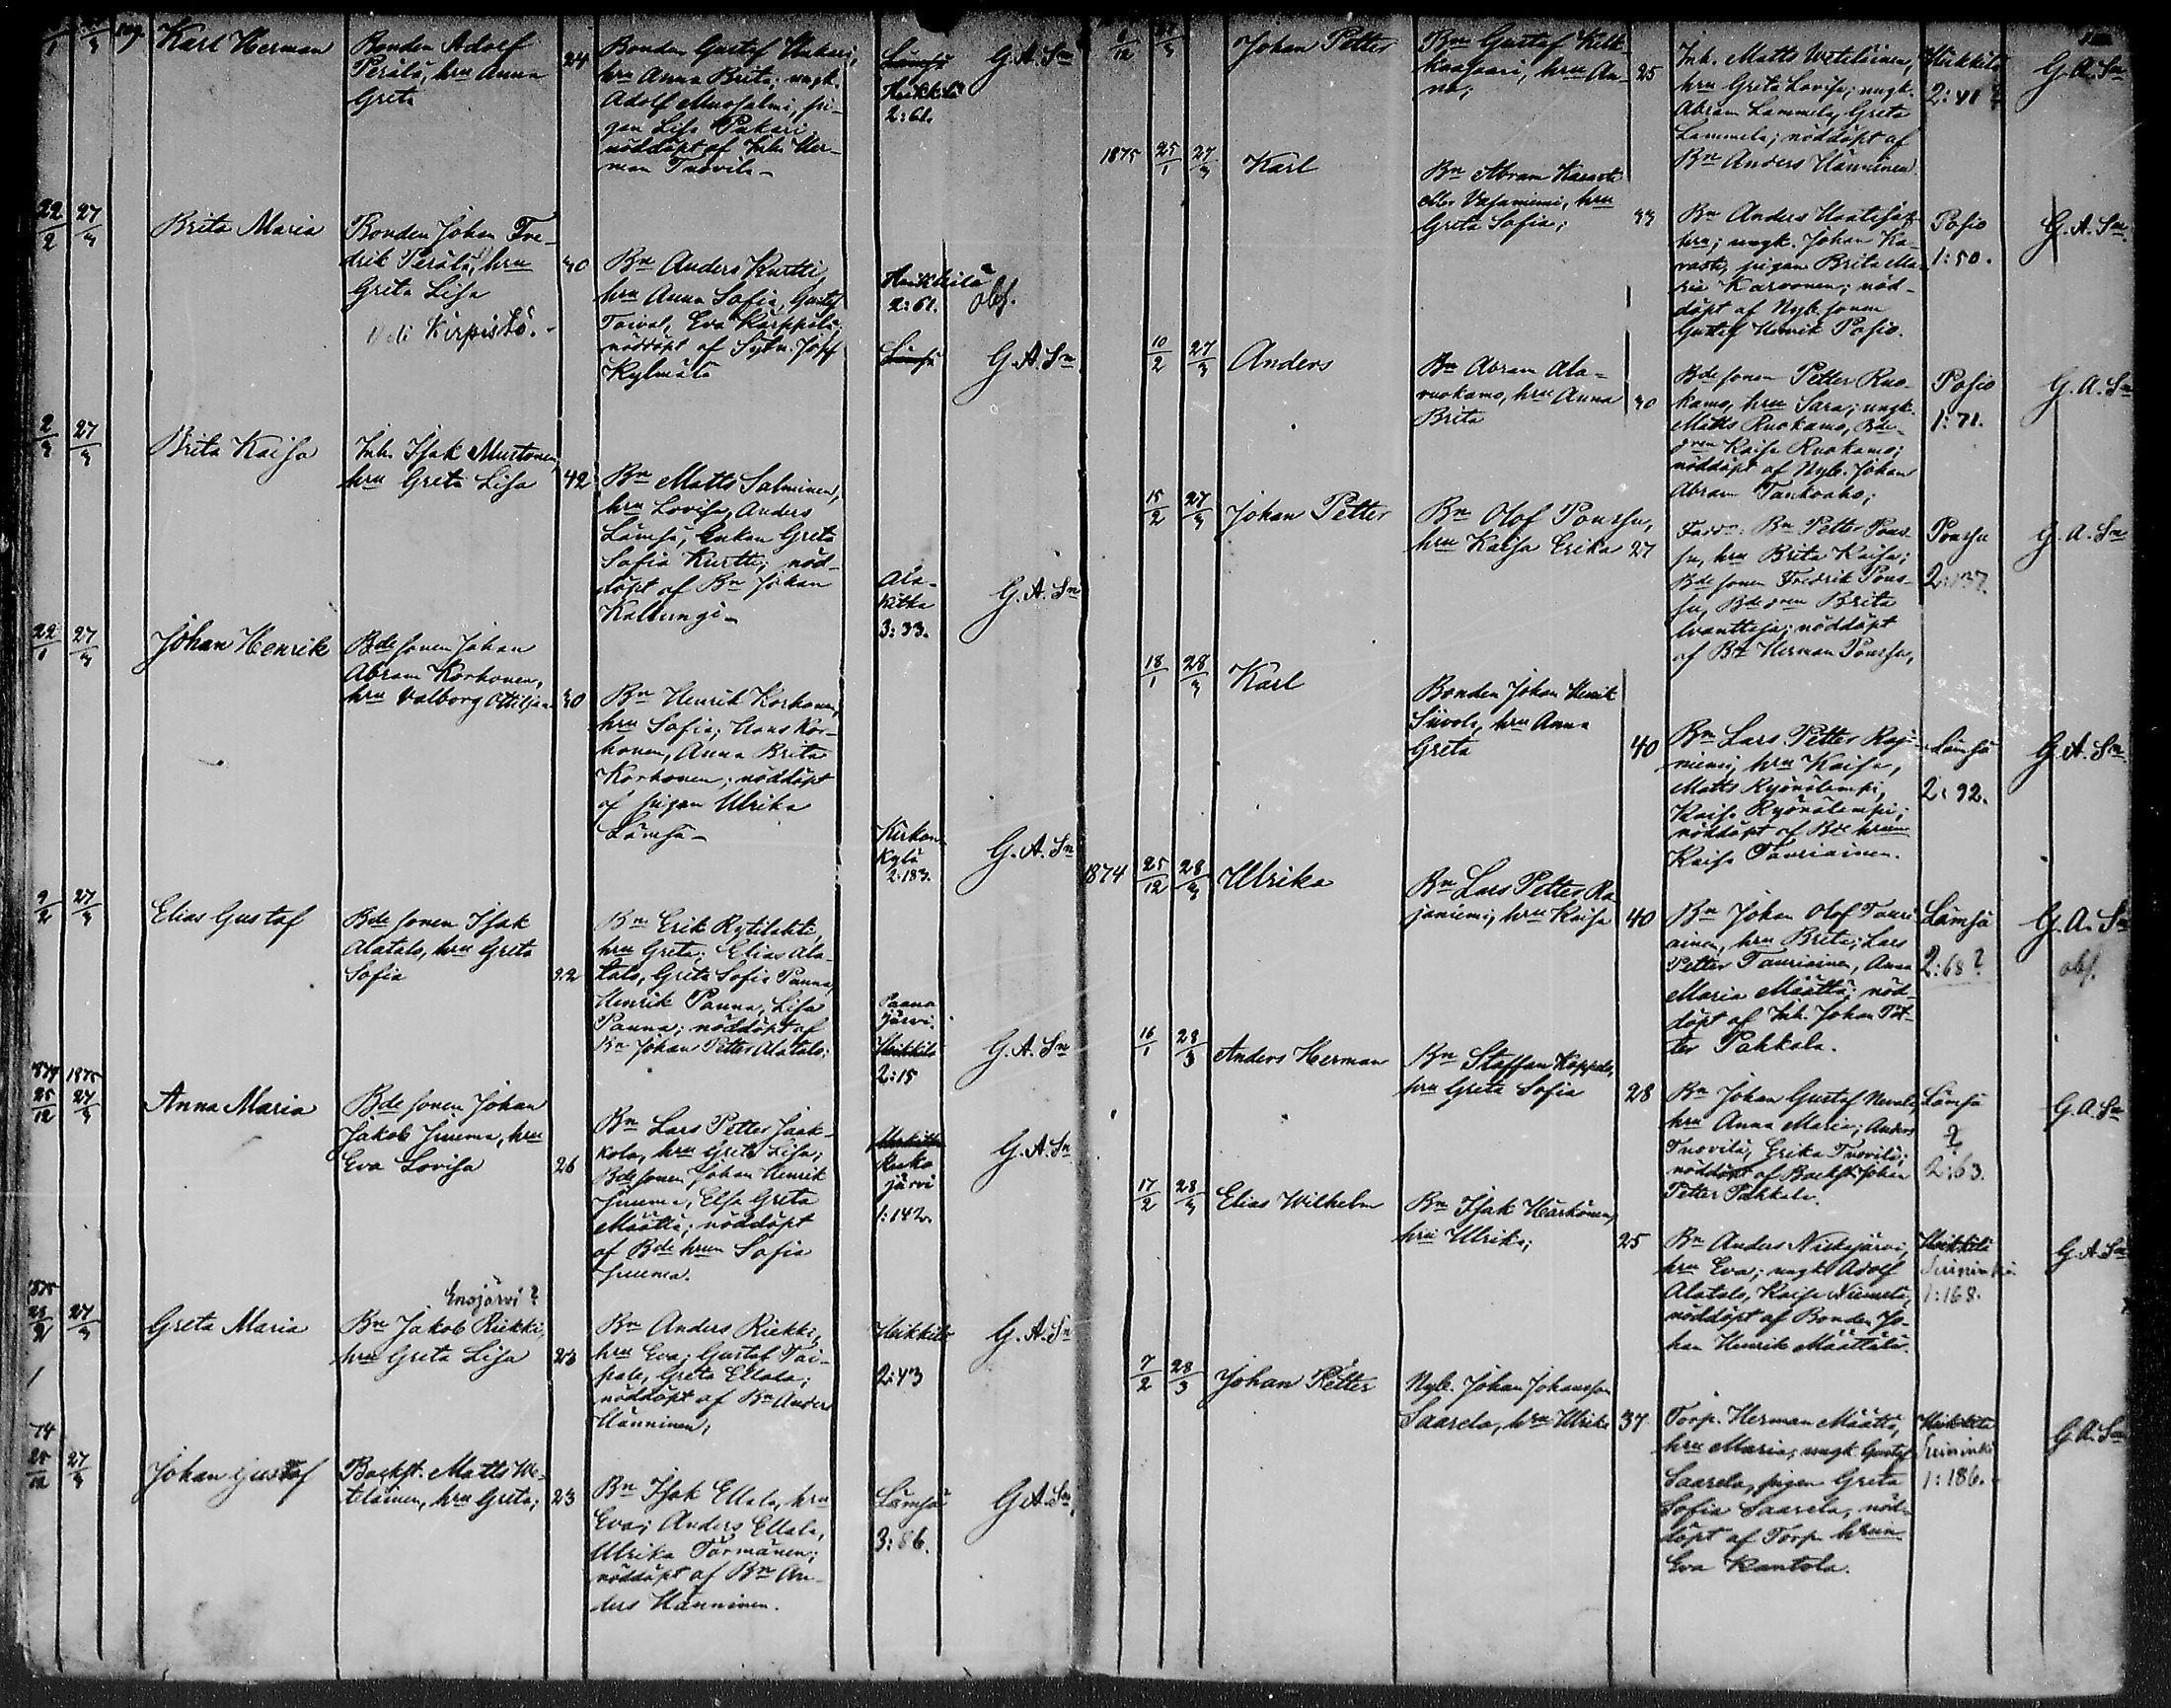 Karl Herman
Bonden Adolf
Perälä, hru Anna
Greta
24
Bonden Gustaf
hru Anna Brita; ungk.
Adolf
gan Lisa Pukari
nöddöpt af Inh. Her-
man Tuovila
Lämsä
Heikkilä
2:61.
G. A. Sn
22/2 27/3
Brita Maria
Bonden Johan Fre-
drik Perälä, hru
Greta Lisa
Kirpistö.
40
Bn Anders Kurtti
hru Anna Sofia, Gustaf
Toival, Eva Karppala;
nöddöpt af Sytn. Josef
Kylmälä
Heikkilä
2:61. obs.
Lämsä
G. A. Sn
2/3 27/3
Brita Kaisa
Inh. Isak Murtonen,
hru Greta Lisa
42
Bn Matts Salminen,
hru Lovisa, Anders
Lämsä, Enkan Greta
Sofia Kurtti; nöd-
döpt af Bn Johan
Kallungi
Ala-
kitka
3:33.
G. A. Sn
22/1 27/3
Johan Henrik
Bde sonen Johan
Abram Korhonen,
hru Valborg Ottilja
30
Bn Henrik Korhonen,
hru Sofia; Hans Kor-
honen, Anna Brita
Korhonen; nöddöpt
af pigan Ulrika
Lämsä
Kirkon-
kylä
2:183.
G. A. Sn
9/2 27/3
Elias Gustaf
Bde sonen Isak
Alatalo, hru Greta
Sofia
22
Bn Erik Rytilahti,
hru Greta; Elias Ala-
talo, Greta Sofia Panna,
Henrik Panna, Lisa
Panna; nöddöpt af
Bn Johan Petter Alatalo;
Paana
järvi.
Heikkilä
2:15
G. A. Sn
1874 1875
25/12 27/3
Anna Maria
Bde sonen Johan
Jakob Juuma, hru
Eva Lovisa
26
Bn Lars Petter Jaak-
kola, hru Greta Lisa;
Bde sonen Johan Henrik
Juuma, Elsa Greta
Määttä; nöddöpt
af Bde hrun Sofia
Juuma.
järvi
1:142.
G. A. Sn
1875
27/3
Greta Maria
Enojärvi?
Bn Jakob Riekki,
hru Greta Lisa
23
Bn Anders Riekki,
hru Eva; Gustaf Tai-
pale, Greta Ellala;
nöddöpt af Bn Anders
Hänninen;
Heikkilä
2:43
G. A. Sn
74
25/12 27/3
Johan Gustaf
Backst. Matts We-
teläinen, hru Greta;
23
Bn Isak Ellala, hru
Eva; Anders Ellala,
Ulrika Törmänen;
nöddöpt af Bn An-
ders Hänninen.
Lämsä
3:86.
G. A. Sn
Johan Petter
Bn Gustaf
hru An-
na;
25
Inh. Matts Weteläinen,
hru Greta Lovisa; ungk.
Abram Lammela, Greta
Lammela; nöddöpt af
Bn Anders Hänninen
Heikkilä
2:41?
G. A. Sn
1875 25/1 27/3
Karl
Bn Abram Karvo
eller Vasaniemi, hru
Greta Sofia;
33
Bn Anders
hru; ungk. Johan Ka-
pigan Brita Ma-
ria Karvonen; nöd-
döpt af Nyb. sonen
Gustaf Henrik Posio.
Posio
1:50.
G. A. Sn
10/2 27/3
Anders
Bn Abram Ala-
ruokamo, hru Anna
Brita
30
Bde sonen Petter Ruo-
kamo, hru Sara; ungk.
Matts Ruokamo, Bde-
dren Kaisa Ruokamo;
nöddöpt af Nyb. Johan
Abram Tankoaho;
Posio
1:71.
G. A. Sn
15/2 27/3
Johan Petter
Bn Olof Poussu,
hru Kaisa Erika
27
Bn Petter Pous-
su, hru Brita Kaisa;
Bde sonen Fredrik Pous-
su, Bde dren Brita
nöddöpt
af Bn Herman Poussu,
Poussu
2:137.
G. A. Sn
18/1 28/3
Karl
Bonden Johan Henrik
Siivola, hru Anna
Greta
40
Bn Lars Petter Raja-
niemi, hru Kaisa,
Matts Kyönälempi,
Kaisa Kyönälempi;
nöddöpt af Bde hrun
Kaisa Tauriainen.
Lämsä
2:92.
G. A. Sn
1874 25/12 28/3
Ulrika
Bn Lars Petter Ra-
janiemi, hru Kaisa
40
Bn Johan Olof Tauri-
ainen, hru Brita; Lars
Petter Tauriainen, Anna
Maria Määttä; nöd-
döpt af Inh. Johan Pet-
ter Pahkala.
Lämsä
2:68?
G. A. Sn
obs.
16/1 28/3
Anders Herman
Bn Staffan Koppelo,
hru Greta Sofia
28
Bn Johan Gustaf Nevala,
hru Anna Maria; Anders
Tuovila, Erika Tuovila;
nöddöpt af Backst. Johan
Petter Pahkala.
Lämsä
?
2:63.
G. A. Sn
17/2 28/3
Elias Wilhelm
Bn Isak Härkönen,
hru Ulrika;
25
Bn Anders Niskajärvi,
hru Eva; ungk. Adolf
Alatalo, Kaisa Niemelä;
nöddöpt af Bonden Jo-
han Henrik Määttälä.
Heikkilä
Suininki
1:168.
G. A. Sn
7/2 28/3
Johan Petter
Nyb. Johan Johansson
Saarela, hru Ulrika
37
Torp. Herman Määttä,
hru Maria; ungk. Gustaf
Saarela, pigan Greta
Sofia Saarela, nöd-
döpt af Torp. hrun
Eva Kantola.
Heikkilä
Suininki
1:186.
G. A. Sn